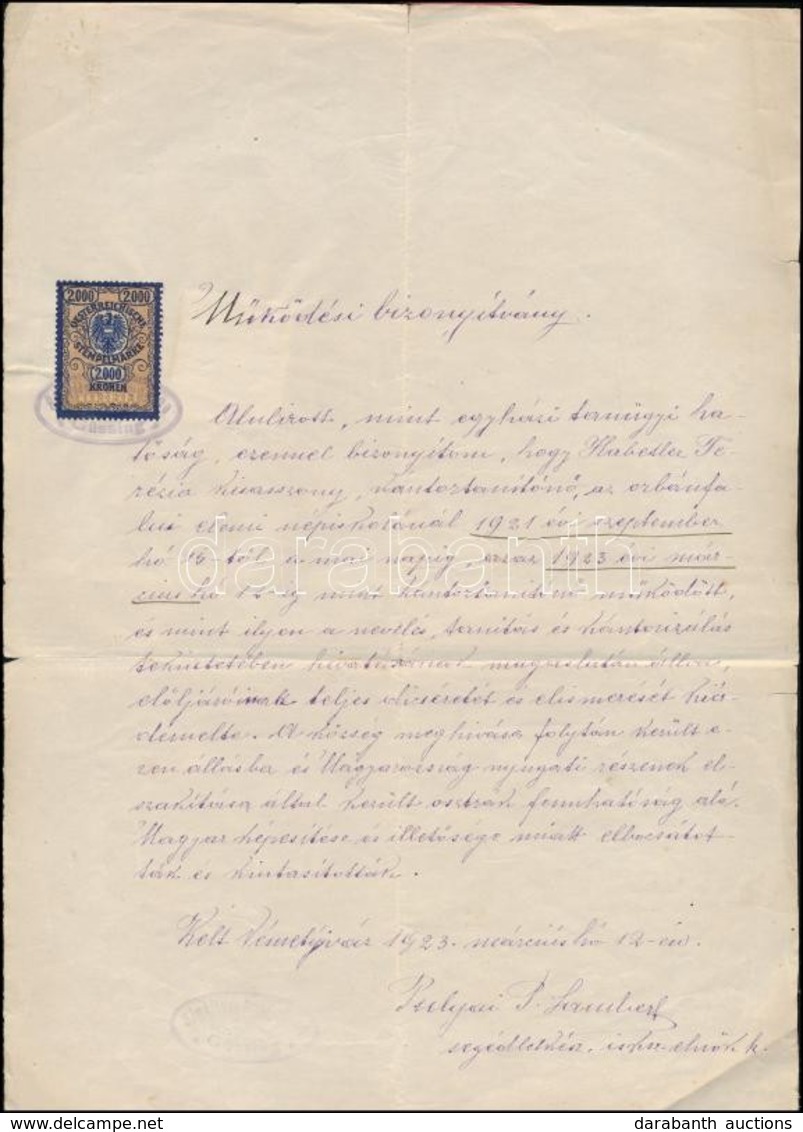 2.000 2.000
OESTERREICHISCHE
STEMPELMARKE
2.000
KRONEN
Güssing
Működési bizonyítvány.
Alulirott, mint egyházi tanügyi ha-
tóság, ezennel bizonyítom, hogy Habetler Te-
rézia kisasszony, kántortanítónő, az orbánfa-
lui elemi népiskolánál 1921 évi szeptember
hó 16-tól a mai napig, azaz 1923 évi már-
cius hó 12-ig mint kántortanítónő működött,
és mint ilyen a nevelés, tanítás és kántorizálás
tekintetében hivatásának magaslatán állva,
elöljáróinak teljes dicséretét és elismerését kiér-
demelte. A község meghivása folytán került e-
zen állásba és Magyarország nyugati részének el-
szakítása által került osztrák fennhatóság alá.
Magyar képesítése és illetősége miatt elbocsátot-
ták és kiutasították.
Kelt Németújvár 1923. március hó 12-én.
P. Lambert
segédlelkész, isk. elnök h.
darabanth
darabanth auctions